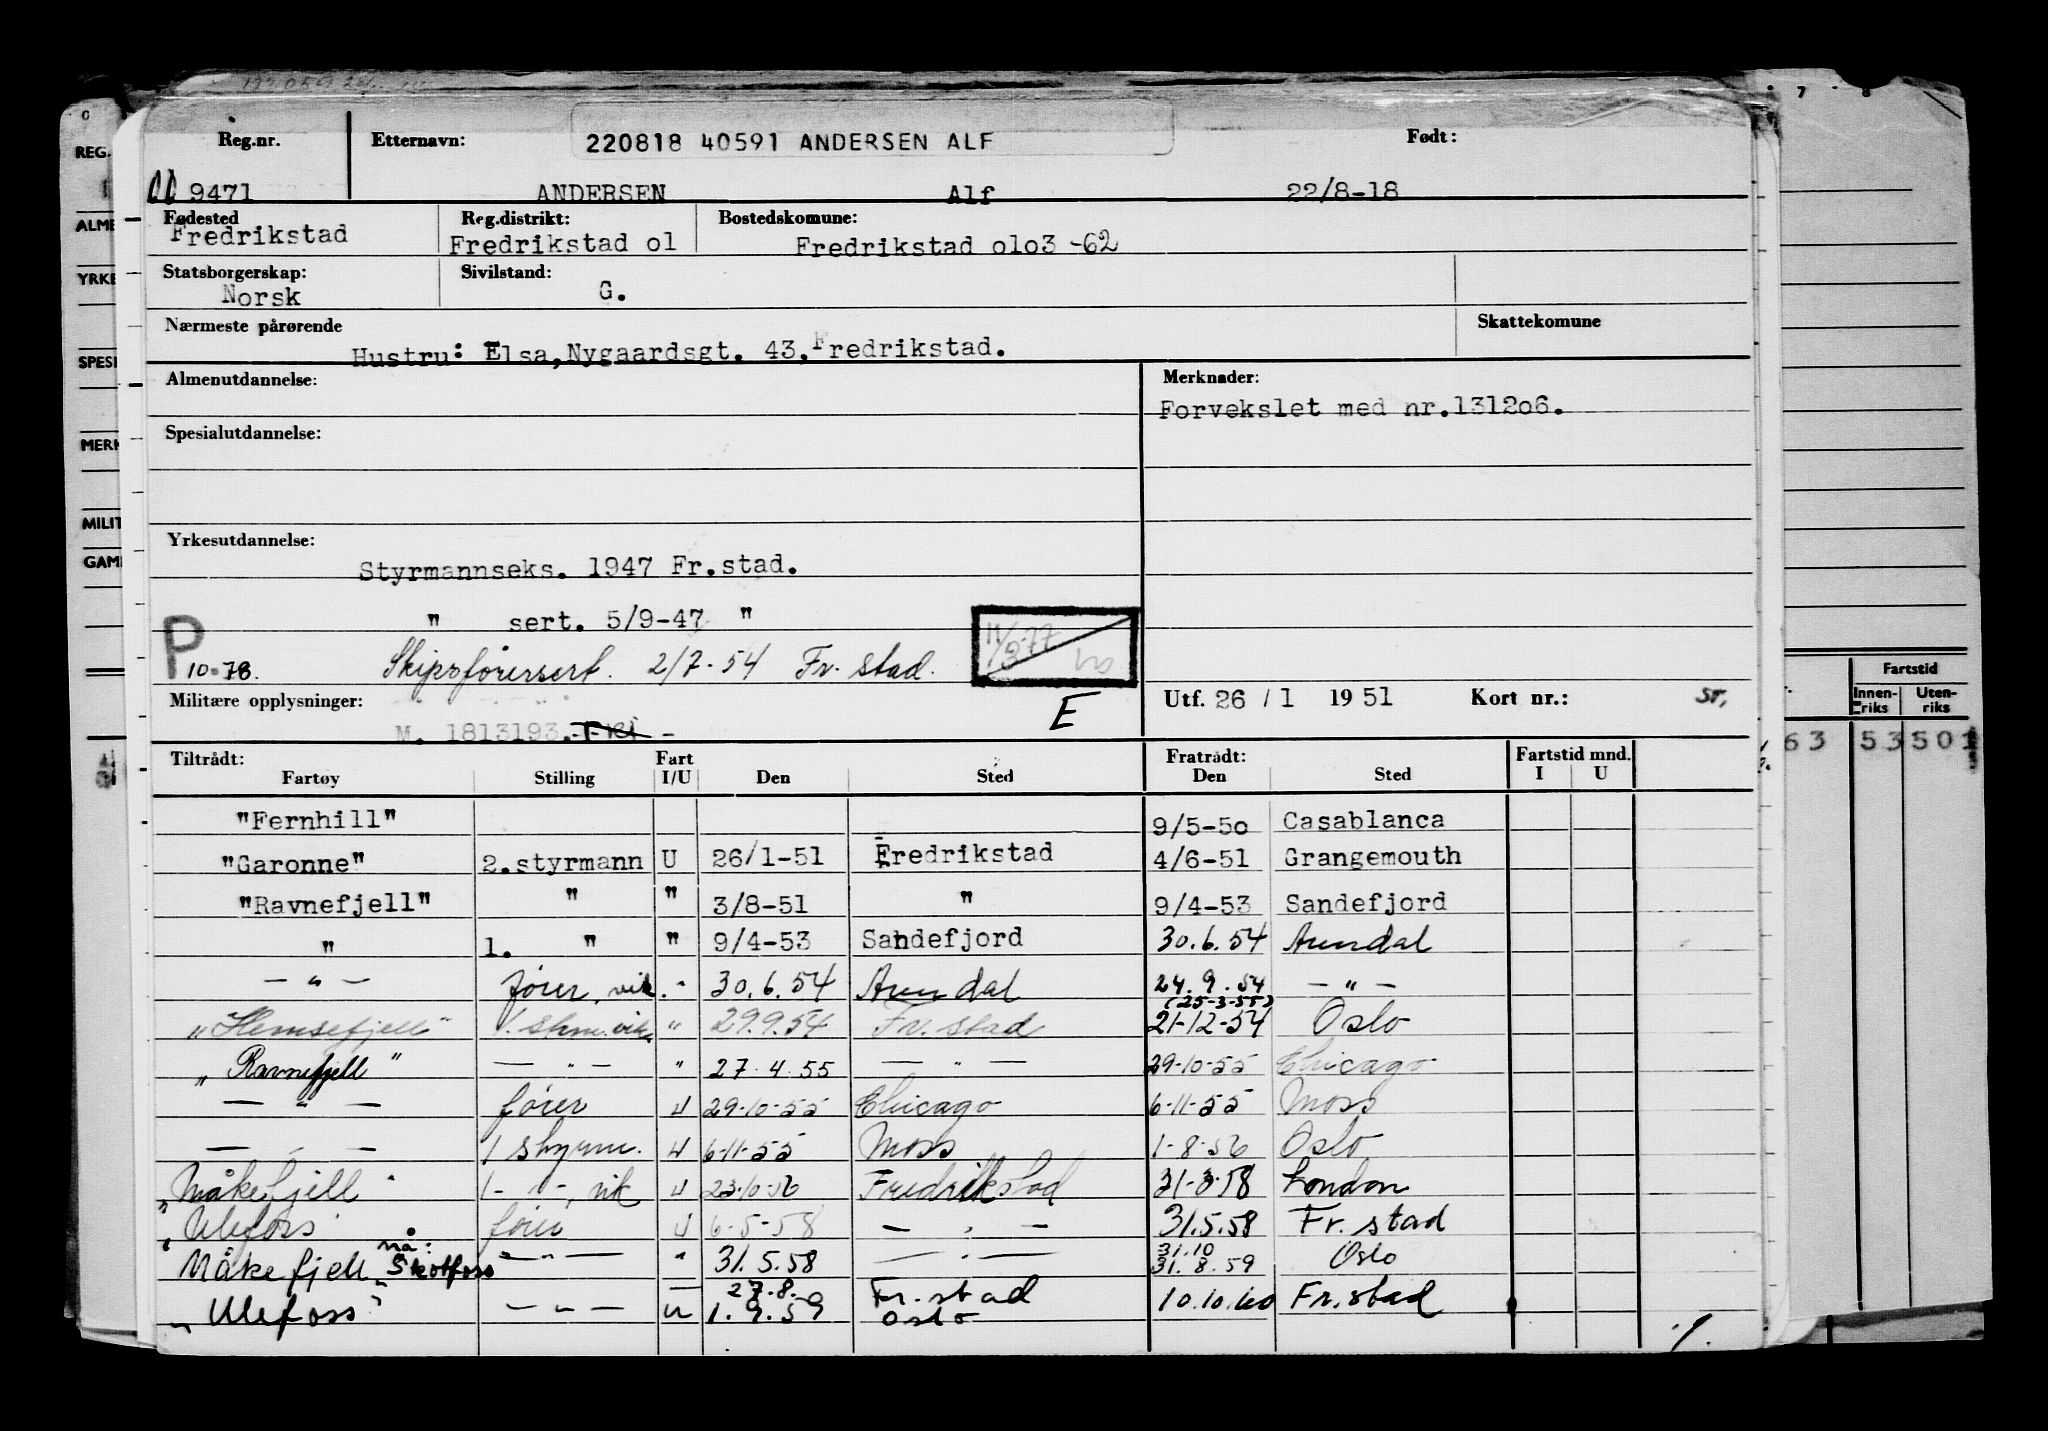 Reg.nr. Etternavn: 220818 40591 ANDERSEN ALF Født:
9471 ANDERSEN Alf 22/8-18
Fødested Reg.distrikt: Bostedskomune:
Fredrikstad Fredrikstad o1 Fredrikstad o1o3 -62
Statsborgerskap: Sivilstand:
Norsk G.
Nærmeste pårørende Skattekomune
Hustru: Elsa, Nygaardsgt. 43, Fredrikstad.
Almenutdannelse: Merknader:
Forvekslet med nr.1312o6.
Spesialutdannelse:
Yrkesutdannelse:
Styrmannseks. 1947 Fr.stad.
" sert. 5/9-47 "
P 10-78. Skipsførersert. 2/7-54 Fr. stad. 11/3-77
Militære opplysninger: E Utf. 26 / 1 19 51 Kort nr.: sr,
M. 1813193.
Tiltrådt: Fart Fratrådt: Fartstid mnd.
Fartøy Stilling I/U Den Sted Den Sted I U
"Fernhill" 9/5-5o Casablanca
"Garonne" 2.styrmann U 26/1-51 Fredrikstad 4/6-51 Grangemouth
"Ravnefjell" " " 3/8-51 " 9/4-53 Sandefjord
" 1. " " 9/4-53 Sandefjord 30.6.54 Arendal
— " — fører, vik. " 30.6.54 Arendal 24.9.54 — " —
(25-3-55)
"Hemsefjell" 1. stm. vik. " 29.9.54 Fr. stad 21-12-54 Oslo
"Ravnefjell" — " — " 27.4.55 — " — 29-10-55 Chicago
— " — fører U 29-10-55 Chicago 6-11-55 Moss
— " — 1 styrm. U 6-11-55 Moss 1-8-56 Oslo
"Måkefjell" 1 - " -, vik U 23-10-56 Fredrikstad 31-3-58 London
"Ulefoss" fører U 6-5-58 — " — 31.5.58 Fr. stad
nå: 31.10
"Måkefjell Skotfoss" — " — " 31.5.58 — " — 31.8.59 Oslo
27.8. Fr. stad
"Ulefoss" — " — U 1.9.59 Oslo 10.10.60 Fr.stad
REG.
ALME
YRKE
SPESI
MERK
MILIT
GAM
7 8
Fartstid
Innen-riks Uten-riks
63 53 50